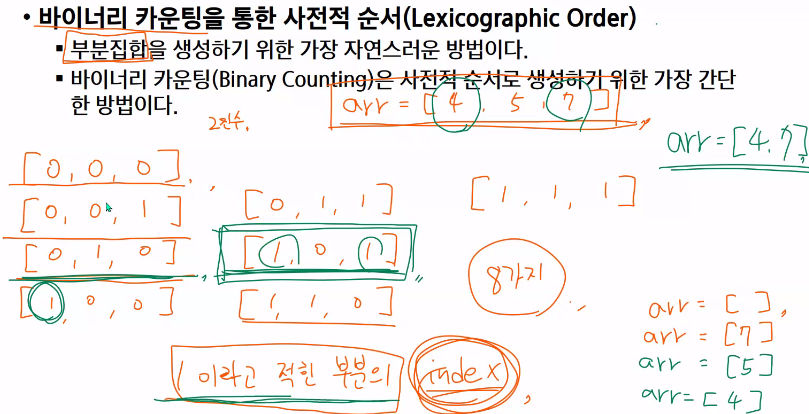 • 바이너리 카운팅을 통한 사전적 순서(Lexicographic Order)
▪ 부분집합을 생성하기 위한 가장 자연스러운 방법이다.
▪ 바이너리 카운팅(Binary Counting)은 사전적 순서로 생성하기 위한 가장 간단
한 방법이다.
arr = [4, 5, 7]
2진수.
arr = [4, 7]
[0, 0, 0]
[0, 0, 1]
[0, 1, 0]
[1, 0, 0]
[0, 1, 1]
[1, 0, 1]
[1, 1, 0]
[1, 1, 1]
8가지
arr = [ ]
arr = [7]
arr = [5]
arr = [4]
1 이라고 적힌 부분의 index